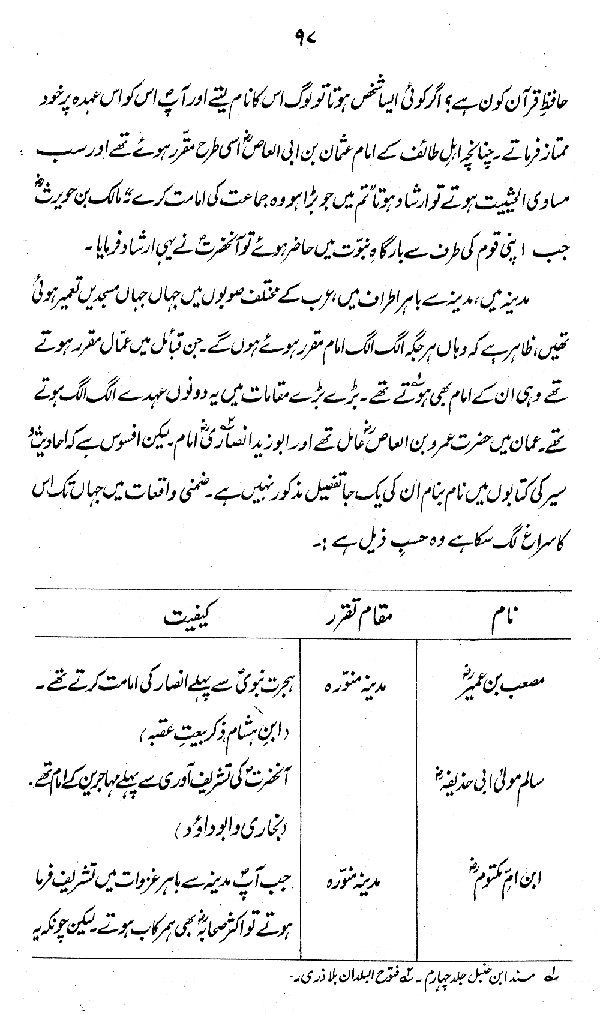 ۹۷
حافظِ قرآن کون ہے؟ اگر کوئی ایسا شخص ہوتا تو لوگ اس کا نام لیتے اور آپؐ اس کو اس عہدہ پر خود
ممتاز فرماتے۔ چنانچہ اہلِ طائف کے امام عثمان بن ابی العاصؓ اسی طرح مقرر ہوئے تھے اور سب
مساوی الحیثیت ہوتے تو ارشاد ہوتا "تم میں جو بڑا ہو وہ جماعت کی امامت کرے" مالک بن حویرثؓ
جب اپنی قوم کی طرف سے بارگاہِ نبوت میں حاضر ہوئے تو آنحضرتؐ نے یہی ارشاد فرمایا۔
مدینہ میں، مدینہ سے باہر اطراف میں، عرب کے مختلف صوبوں میں جہاں جہاں مسجدیں تعمیر ہوئی
تھیں، ظاہر ہے کہ وہاں ہر جگہ الگ الگ امام مقرر ہوئے ہوں گے۔ جن قبائل میں عمال مقرر ہوتے
تھے وہی ان کے امام بھی ہوتے تھے۔ بڑے بڑے مقامات میں یہ دونوں عہدے الگ الگ ہوتے
تھے۔ عمان میں حضرت عمرو بن العاصؓ عامل تھے اور ابو زید انصاریؓ امام۔ لیکن افسوس ہے کہ احادیث و
سیر کی کتابوں میں نام بنام ان کی یک جا تفصیل مذکور نہیں ہے۔ ضمنی واقعات میں جہاں تک اس
کا سراغ لگ سکا ہے وہ حسبِ ذیل ہے :۔
نام مقامِ تقرر کیفیت
مصعب بن عمیرؓ مدینہ منورہ ہجرتِ نبویؐ سے پہلے انصار کی امامت کرتے تھے۔
(ابن ہشام ذکر بیعتِ عقبہ)
سالم مولیٰ ابی حذیفہؓ آنحضرتؐ کی تشریف آوری سے پہلے مہاجرین کے امام تھے۔
(بخاری و ابوداؤد)
ابن امِ مکتومؓ مدینہ منورہ جب آپؐ مدینہ سے باہر غزوات میں تشریف فرما
ہوتے تو اکثر صحابہؓ بھی ہمرکاب ہوتے۔ لیکن چونکہ یہ
۱؎ مسند ابن حنبل جلد چہارم۔ ۲؎ فتوح البلدان بلاذری۔